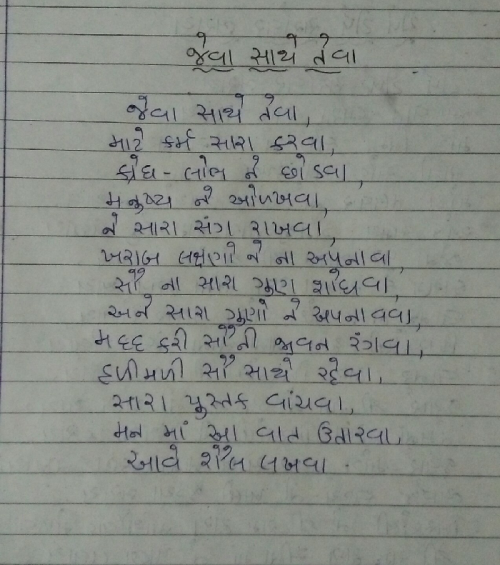 જેવા સાથે તેવા
જેવા સાથે તેવા,
માટે કર્મ સારા કરવા,
ક્રોધ-લોભ ને છોડવા,
મનુષ્ય ને ઓળખવા,
ને સારા સંગ રાખવા,
ખરાબ લક્ષણો ને ના અપનાવા,
સૌ ના સારા ગુણ શોધવા,
અને સારા ગુણો ને અપનાવવા,
મદદ કરી સૌની જીવન રંગવા,
હળીમળી સૌ સાથે રહેવા,
સારા પુસ્તક વાંચવા,
મન માં આ વાત ઉતારવા,
આવે શૈલ લખવા.